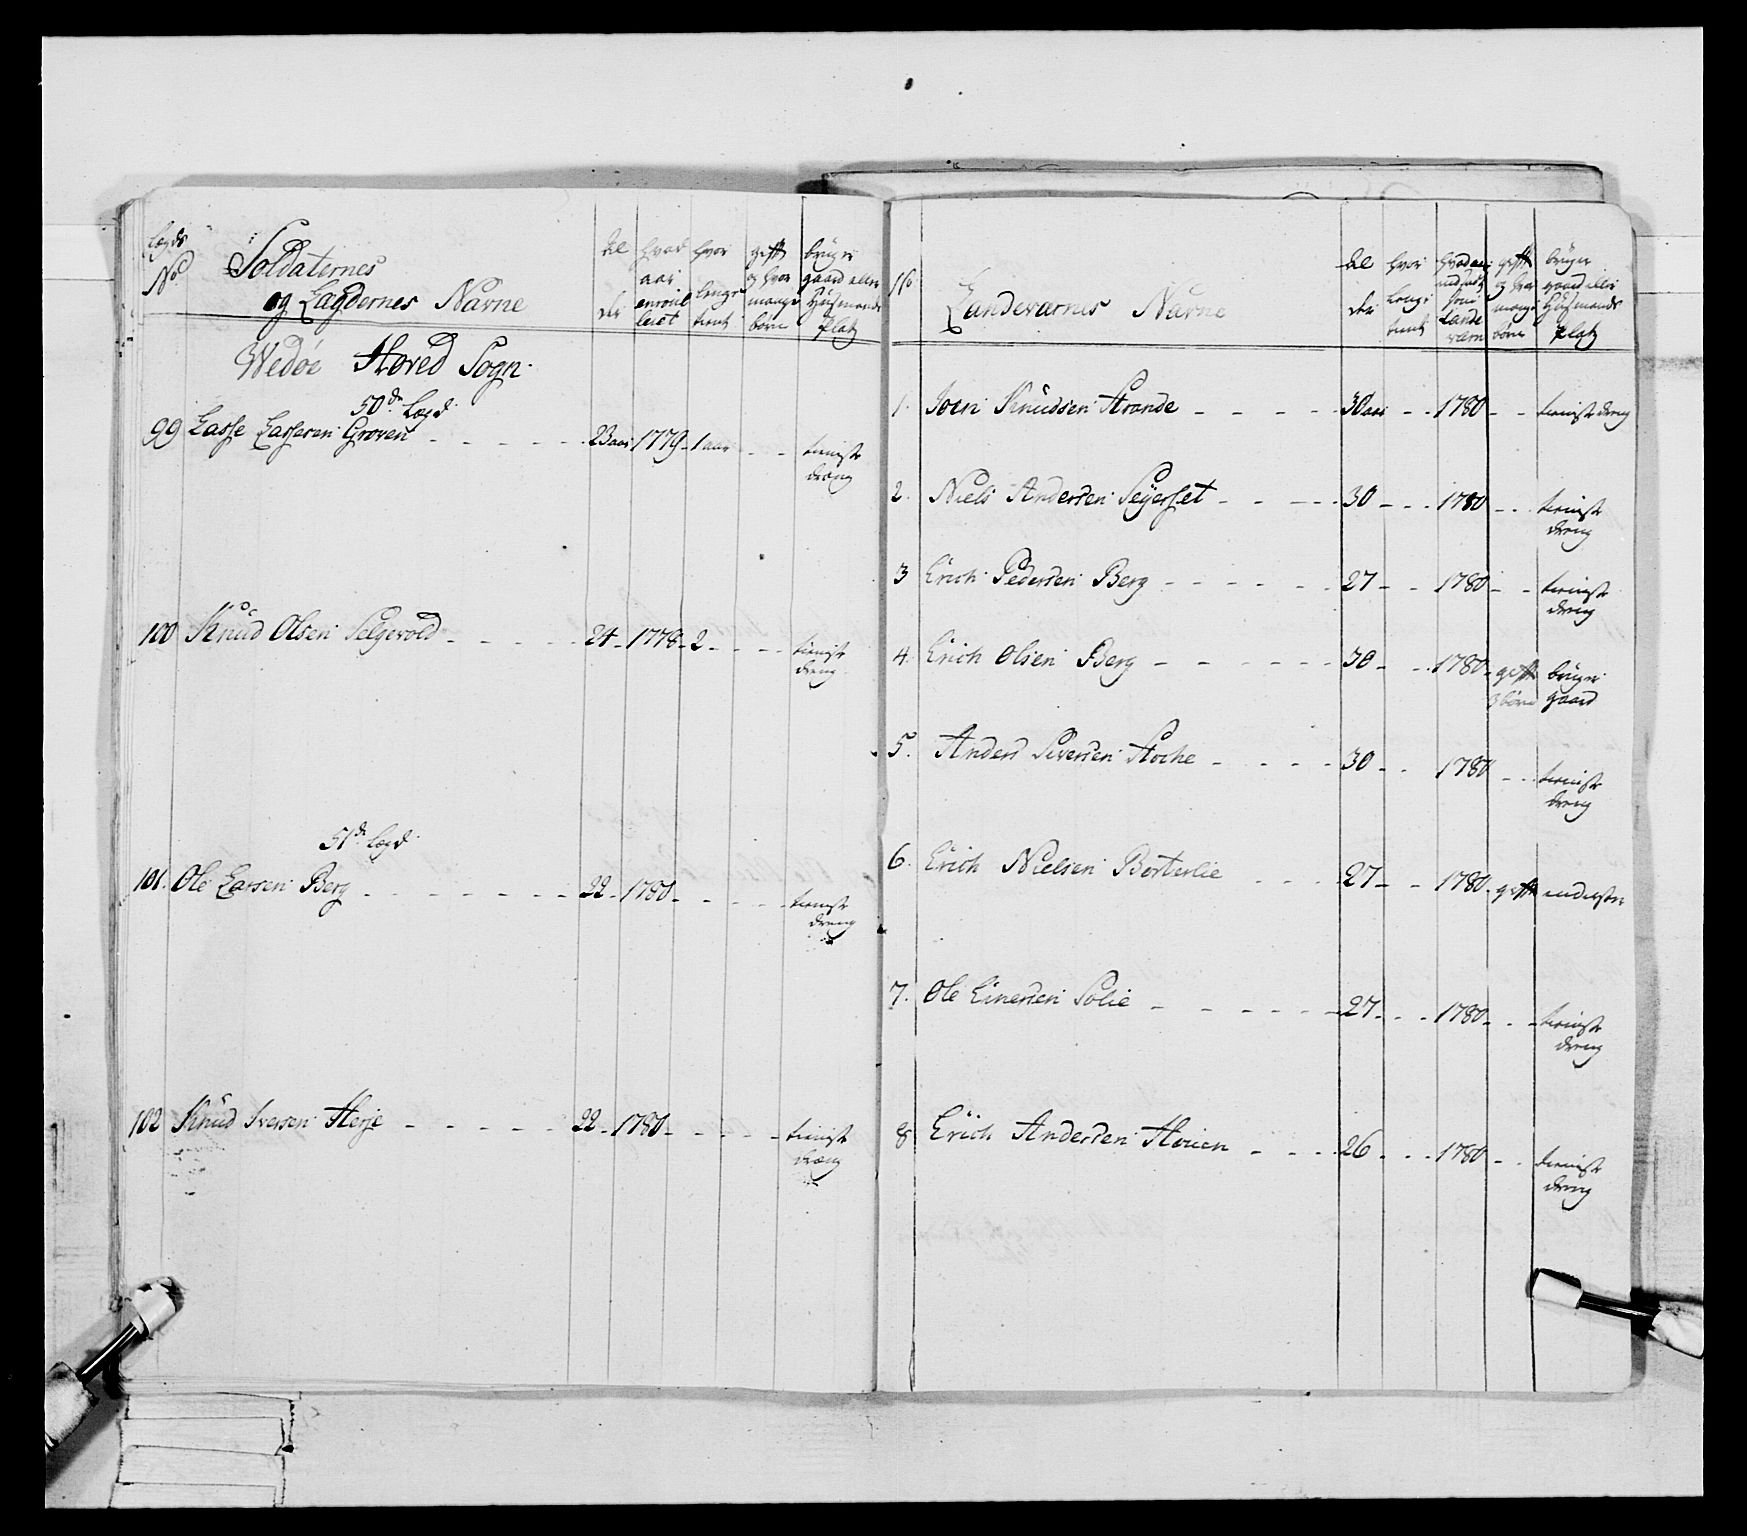 Lægds No Soldaternes og Lægdernes Navne Al der hvad aar enroulleret hvor lenge tient gift og hvor mange børn bruger gaard eller Huusmands Platz
Wedøe Hoved Sogn
50de Lægd
99 Lasse Lassesen Groven - - - - - 23 aar 1779 - 1 aar - - tieniste dreng
100 Knud Olsen Selgevold - - - - - 24 - 1778 - 2 - - - - tieniste dreng
51de Lægd
101. Ole Larsen Berg - - - - - - 22 - 1780 - - - - - tieniste dreng
102 Knud Iversen Herje - - - - - 22 - 1780 - - - - - tieniste dreng
No Landeværnes Navne Al der hvor lenge tient hvad aar udsadt som Landeværn gift og hvor mange børn bruger gaard eller Huusmands Platz
1. Joen Knudsen Strande - - - - 30 aar - - 1780 - - tieniste dreng
2. Niels Andersen Seyerset - - - - 30 - - - 1780 - - tieniste dreng
3 Erich Pedersen Berg - - - - - 27 - - 1780 - - tieniste dreng
4. Erich Olsen Berg - - - - - - 30 - - 1780 - gift 3 børn bruger gaard
5. Anders Siversen Stoche - - - - 30 - - 1780 - - tieniste dreng
6. Erich Nielsen Bosterlie - - - 27 - - 1780 - gift inderste
7. Ole Einersen Solie - - - - - - 27 - - - 1780 - - - tieniste dreng
8 Erich Andersen Horien - - - 26 - - - 1780 - - tieniste dreng